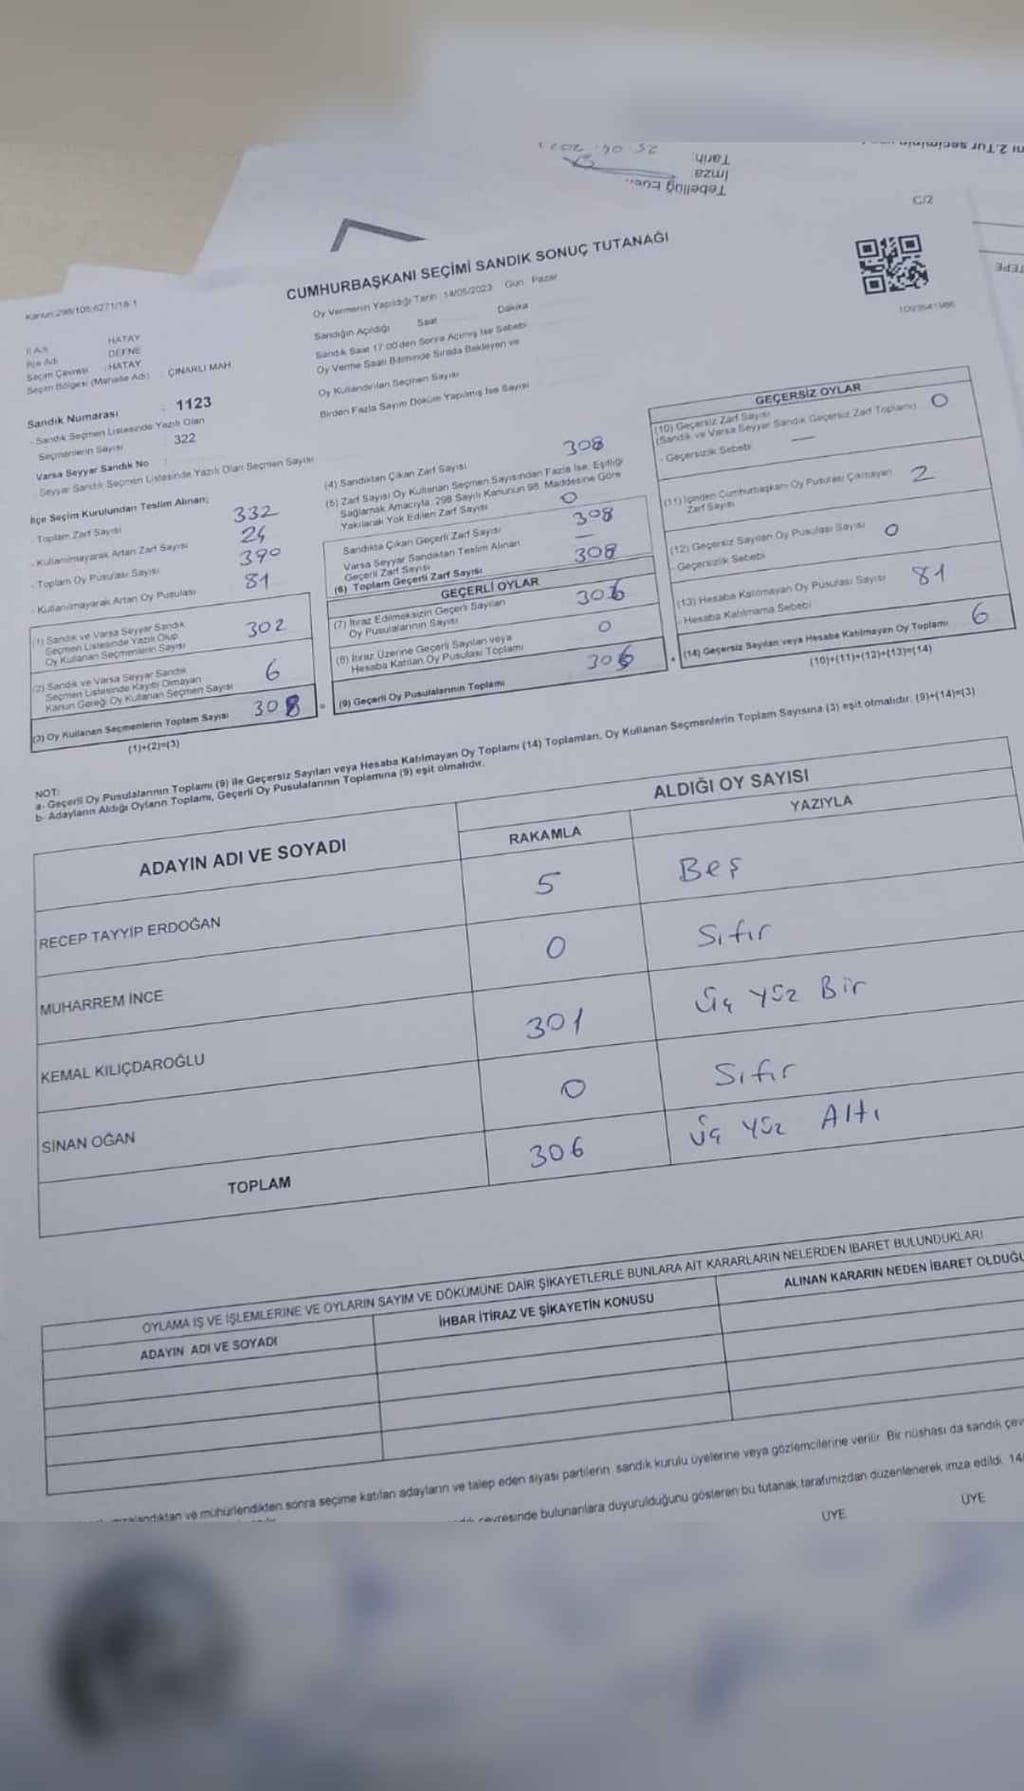 25.04.2023
Tarih:
İmza
Tebellüğ Eden
C/2
Kanun:298/105-6271/18-1
CUMHURBAŞKANI SEÇİMİ SANDIK SONUÇ TUTANAĞI
Oy Vermenin Yapıldığı Tarih : 14/05/2023 Gün : Pazar
Sandığın Açıldığı Saat Dakika
Sandık Saat 17.00'den Sonra Açılmış İse Sebebi
Oy Verme Saati Bitiminde Sırada Bekleyen ve
Oy Kullandırılan Seçmen Sayısı
Birden Fazla Sayım Döküm Yapılmış İse Sayısı
İl Adı : HATAY
İlçe Adı : DEFNE
Seçim Çevresi : HATAY
Seçim Bölgesi (Mahalle Adı) : ÇINARLI MAH
Sandık Numarası : 1123
- Sandık Seçmen Listesinde Yazılı Olan
Seçmenlerin Sayısı : 322
Varsa Seyyar Sandık No :
- Seyyar Sandık Seçmen Listesinde Yazılı Olan Seçmen Sayısı
İlçe Seçim Kurulundan Teslim Alınan;
- Toplam Zarf Sayısı 332
- Kullanılmayarak Artan Zarf Sayısı 24
- Toplam Oy Pusulası Sayısı 390
- Kullanılmayarak Artan Oy Pusulası 81
(1) Sandık ve Varsa Seyyar Sandık
Seçmen Listesinde Yazılı Olup
Oy Kullanan Seçmenlerin Sayısı 302
(2) Sandık ve Varsa Seyyar Sandık
Seçmen Listesinde Kayıtlı Olmayan
Kanun Gereği Oy Kullanan Seçmen Sayısı 6
(3) Oy Kullanan Seçmenlerin Toplam Sayısı 308
(1)+(2)=(3)
(4) Sandıktan Çıkan Zarf Sayısı 308
(5) Zarf Sayısı Oy Kullanan Seçmen Sayısından Fazla İse, Eşitliği
Sağlamak Amacıyla, 298 Sayılı Kanunun 98. Maddesine Göre
Yakılarak Yok Edilen Zarf Sayısı 0
Sandıkta Çıkan Geçerli Zarf Sayısı 308
Varsa Seyyar Sandıktan Teslim Alınan
Geçerli Zarf Sayısı —
(6) Toplam Geçerli Zarf Sayısı 308
GEÇERLİ OYLAR
(7) İtiraz Edilmeksizin Geçerli Sayılan
Oy Pusulalarının Sayısı 306
(8) İtiraz Üzerine Geçerli Sayılan veya
Hesaba Katılan Oy Pusulası Toplamı 0
(9) Geçerli Oy Pusulalarının Toplamı 306
1093641986
GEÇERSİZ OYLAR
(10) Geçersiz Zarf Sayısı
(Sandık ve Varsa Seyyar Sandık Geçersiz Zarf Toplamı) 0
- Geçersizlik Sebebi —
(11) İçinden Cumhurbaşkanı Oy Pusulası Çıkmayan
Zarf Sayısı 2
(12) Geçersiz Sayılan Oy Pusulası Sayısı 0
- Geçersizlik Sebebi
(13) Hesaba Katılmayan Oy Pusulası Sayısı 81
- Hesaba Katılmama Sebebi
(14) Geçersiz Sayılan veya Hesaba Katılmayan Oy Toplamı 6
(10)+(11)+(12)+(13)=(14)
NOT:
a- Geçerli Oy Pusulalarının Toplamı (9) ile Geçersiz Sayılan veya Hesaba Katılmayan Oy Toplamı (14) Toplamları, Oy Kullanan Seçmenlerin Toplam Sayısına (3) eşit olmalıdır. (9)+(14)=(3)
b- Adayların Aldığı Oyların Toplamı, Geçerli Oy Pusulalarının Toplamına (9) eşit olmalıdır.
ADAYIN ADI VE SOYADI
ALDIĞI OY SAYISI
RAKAMLA YAZIYLA
RECEP TAYYİP ERDOĞAN 5 Beş
MUHARREM İNCE 0 Sıfır
KEMAL KILIÇDAROĞLU 301 Üç yüz Bir
SİNAN OĞAN 0 Sıfır
TOPLAM 306 Üç yüz Altı
OYLAMA İŞ VE İŞLEMLERİNE VE OYLARIN SAYIM VE DÖKÜMÜNE DAİR ŞİKAYETLERLE BUNLARA AİT KARARLARIN NELERDEN İBARET BULUNDUKLARI
ADAYIN ADI VE SOYADI İHBAR İTİRAZ VE ŞİKAYETİN KONUSU ALINAN KARARIN NEDEN İBARET OLDUĞU
ve mühürlendikten sonra seçime katılan adayların ve talep eden siyasi partilerin sandık kurulu üyelerine veya gözlemcilerine verilir. Bir nüshası da sandık
çevresinde bulunanlara duyurulduğunu gösteren bu tutanak tarafımızdan düzenlenerek imza edildi. 14
ÜYE ÜYE